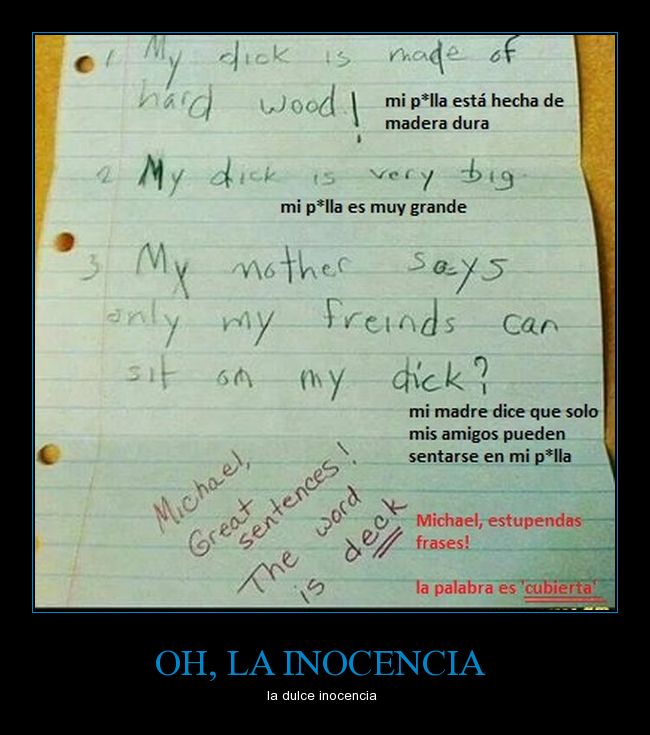 1 My dick is made of
hard wood!
mi p*lla está hecha de
madera dura
2 My dick is very big.
mi p*lla es muy grande
3 My mother says
only my freinds can
sit on my dick?
mi madre dice que solo
mis amigos pueden
sentarse en mi p*lla
Michael,
Great
sentences!
The word
is deck
Michael, estupendas
frases!
la palabra es 'cubierta'
OH, LA INOCENCIA
la dulce inocencia